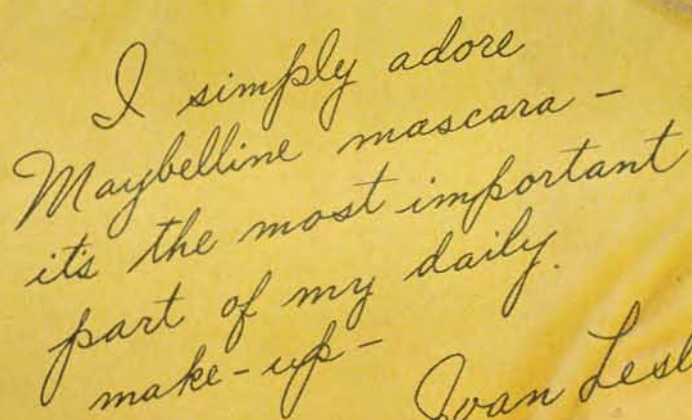 I simply adore
Maybelline mascara -
it's the most important
part of my daily
make-up -
Joan